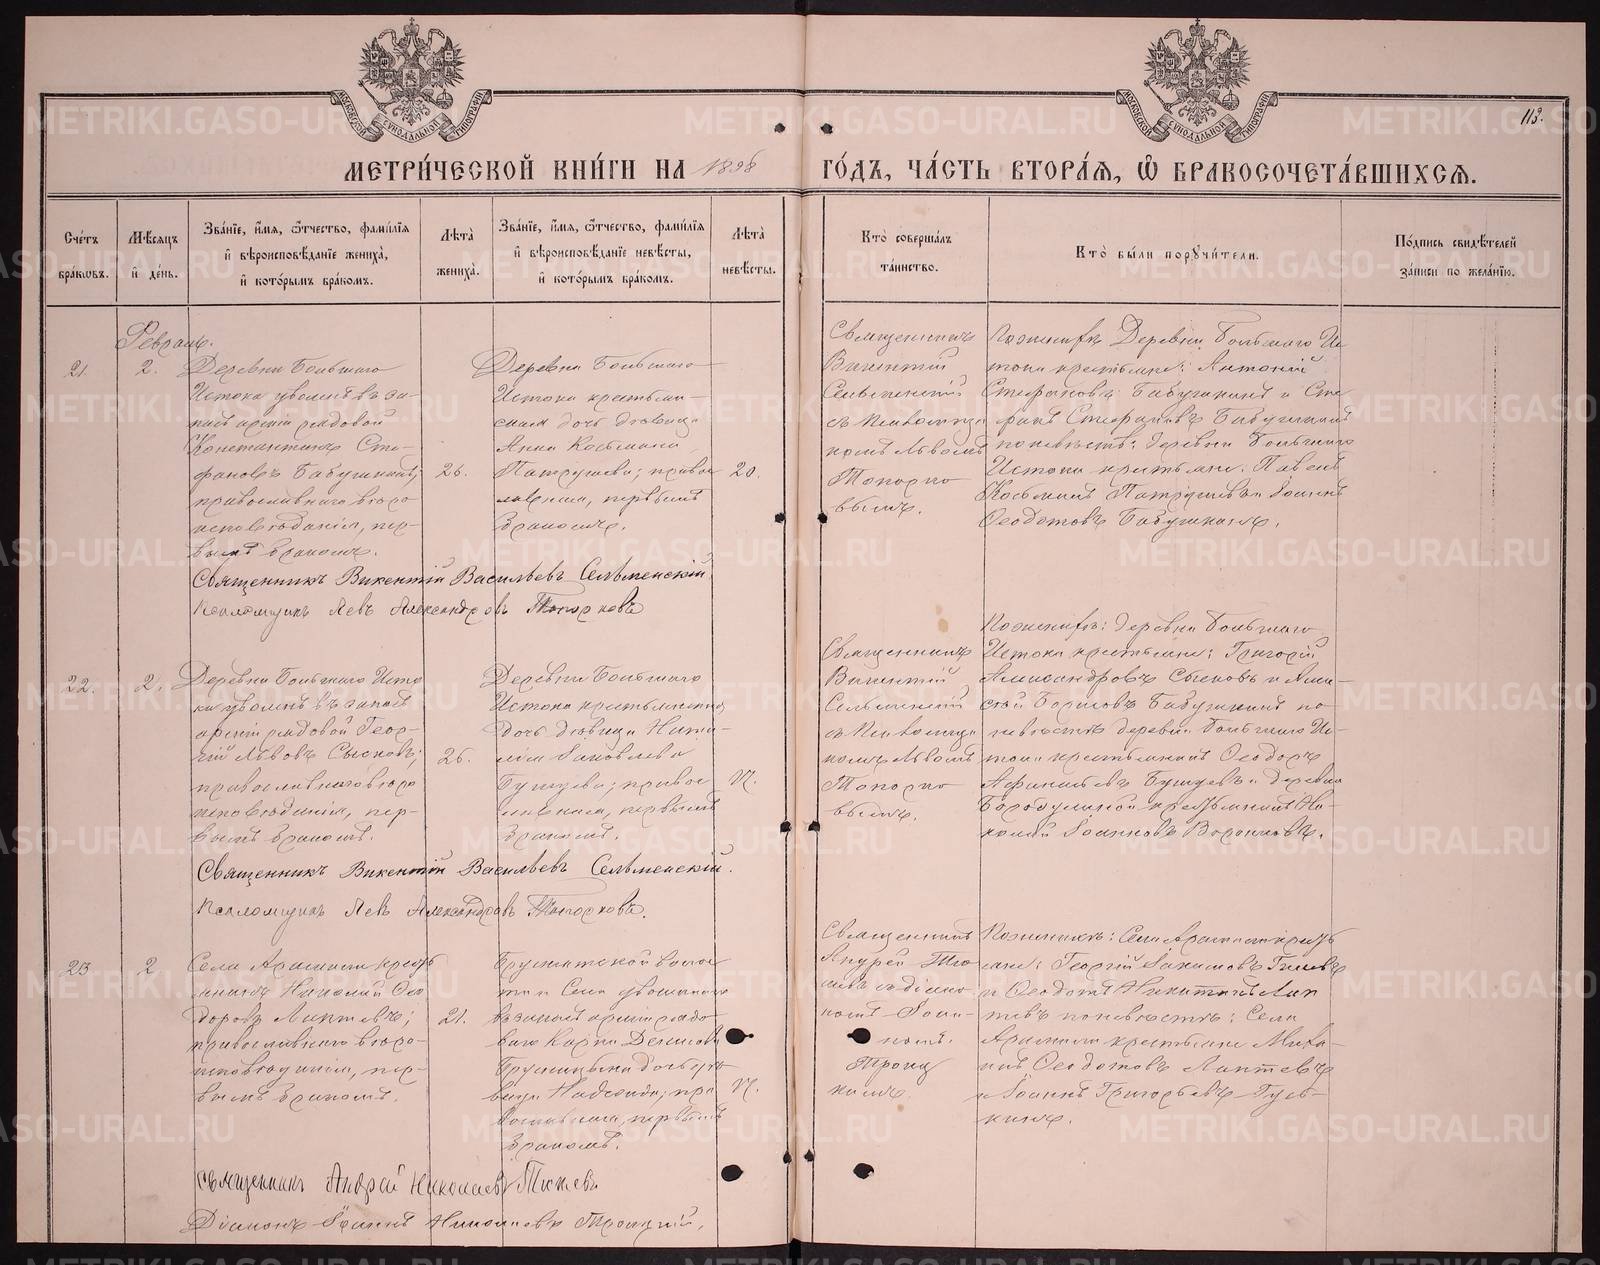 МОСКОВСКОЙ СѴНОДАЛЬНОЙ ТИПОГРАФІИ
МОСКОВСКОЙ СѴНОДАЛЬНОЙ ТИПОГРАФІИ
113.
МЕТРИ́ЧЕСКОЙ КНИ́ГИ НА 1898 ГО́ДЪ, ЧА́СТЬ ВТОРА́Ѧ, Ѿ БРАКОСОЧЕТА́ВШИХСѦ.
Сче́тъ бра́кѡвъ.
Мѣ́сѧцъ и҆ де́нь.
Зва́нїе, и҆́мѧ, ѻ҆́тчество, фами́лїѧ и҆ вѣроисповѣ́данїе жениха̀, и҆ кото́рымъ бра́комъ.
Лѣ̀та жениха̀.
Зва́нїе, и҆́мѧ, ѻ҆́тчество, фами́лїѧ и҆ вѣроисповѣ́данїе невѣ́сты, и҆ кото́рымъ бра́комъ.
Лѣ̀та невѣ́сты.
Кто̀ соверша́лъ та́инство.
Кто̀ бы́ли порꙋчи́тели.
По́дпись свидѣ́телей за́писи по жела́нїю.
Февраль.
21.
2.
Деревни Большаго
Истока уволен въ за-
пасъ арміи рядовой
Константинъ Сте-
фановъ Бабушкинъ;
православнаго вѣро
исповѣданія, пер-
вымъ бракомъ.
26.
Деревни Большаго
Истока крестьян-
ская дочь дѣвица
Анна Косьмина
Патрушева; право
славная, первымъ
бракомъ.
20.
Священникъ
Викентій
Сельменскій
съ Псаломщи
комъ Львомъ
Топорко
вымъ.
По женихѣ Деревни Большаго Ис
тока крестьяне: Антоній
Стефановъ Бабушкинъ и Сте
фанъ Стефановъ Бабушкинъ
по невѣстѣ: деревни Большаго
Истока крестьяне: Павелъ
Косьминъ Патрушевъ и Іоаннъ
Ѳеодотовъ Бабушкинъ.
Священникъ Викентій Васильевъ Сельменскій
Псаломщикъ Левъ Александровъ Топорковъ
22.
2.
Деревни Большаго Исто
ка уволенъ въ запасъ
арміи рядовой Геор-
гій Львовъ Сысковъ;
православнаго вѣро
исповѣданія, пер-
вымъ бракомъ.
26.
Деревни Большаго
Истока крестьянина
дочь дѣвица Ната-
лія Іаковлева
Бушуева; право
славная, первымъ
бракомъ.
17.
Священникъ
Викентій
Сельменскій
съ Псаломщи
комъ Львомъ
Топорко
вымъ.
По женихѣ: деревни Большаго
Истока крестьяне: Григорій
Александровъ Сысковъ и Алек-
сѣй Борисовъ Бабушкинъ по
невѣстѣ деревни Большаго Ис-
тока крестьянинъ Ѳеодоръ
Аѳанасьевъ Бушуевъ и деревни
крестьянинъ Ни-
колай Іоанновъ Воронковъ.
Священникъ Викентій Васильевъ Сельменскій.
Псаломщикъ Левъ Александровъ Топорковъ.
23
2
Села Арамили кресть
янинъ Николай Ѳео
доровъ Лаптевъ;
православнаго вѣро-
исповѣданія, пер-
вымъ бракомъ.
21.
волос
ти и Села уволеннаго
въ запасъ арміи рядо
ваго Карпа Денисова
дочь дѣ
вица Надежда; пра
вославная, первымъ
бракомъ.
17.
Священникъ
Андрей
съ діако
номъ Іоан-
номъ
Троиц
кимъ.
По женихѣ: Села Арамили кресть
яне: Георгій
и Ѳеодотъ Никитинъ Лап
тевъ по невѣстѣ: Села
Арамили крестьяне Миха-
илъ Ѳеодотовъ Лаптевъ
и Іоаннъ Григорьевъ Гусь-
кинъ.
Священникъ Андрей Николаевъ
Діаконъ Іоаннъ Николаевъ Троицкій.
METRIKI.GASO-URAL.RU